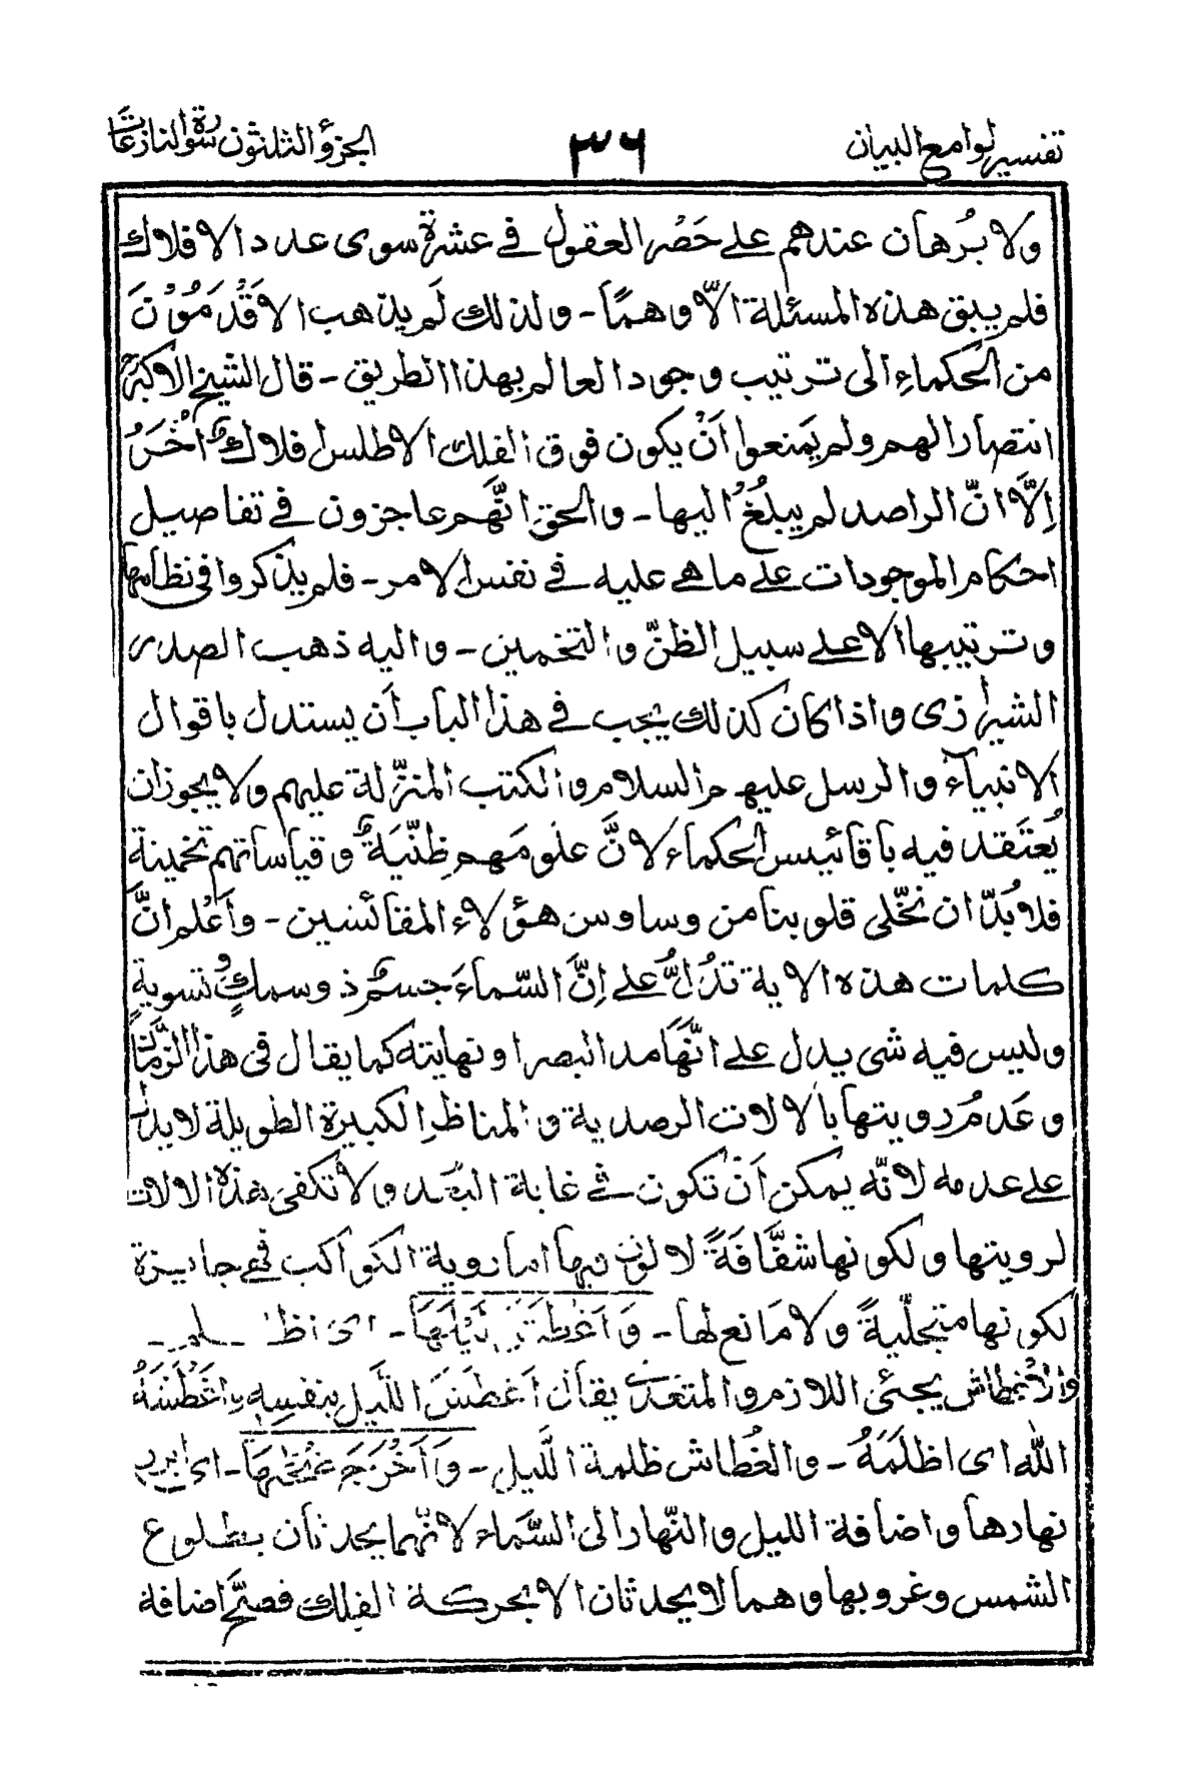 تفسير لوامع البيان ٣٦ الجزؤ الثلثون سورة والنازعات
ولا بُرهان عندهم على حَصْر العقول في عشرة سوى عدد الافلاك
فلم يبق هذه المسئلة الّا وهمًا - ولذلك لَم يذهب الاقْدَمُوْنَ
من الحُكماءِ الى ترتيب وجود العالم بهذا الطريق - قال الشيخ الاكبر
انتصارا لهم ولم يَمنعوا اَنْ يكون فوق الفلك الاطلس فلاكٌ اُخَرُ
اِلَّا انّ الراصد لم يبلُغْ اليها - والحق انّهم عاجزون في تفاصيل
احكام الموجودات على ما هي عليه في نفس الامر - فلم يذكروا في نظامها
وترتيبها الا على سبيل الظنّ والتخمين - واليه ذهب الصدر
الشيرازى واذا كان كذلك يجب في هذا الباب أن يستدل باقوال
الانبيآء والرسل عليهم السلام والكتب المنزّلة عليهم ولا يجوز ان
يُعتَقد فيه باقائيس الحكماء لانَّ علومَهم ظنّيَةٌ وقياساتهم تخمينة
فلا بُدّ ان نخّلى قلوبنا من وساوس هؤلاء المقائسين - وأعْلم انَّ
كلمات هذه الاية تدُلُّ على اِنَّ السّماءَ جسمٌ ذو سمكٍ وتسويةٍ
وليس فيه شى يدل على انّهَا مد البصر او نهايته كما يقال فى هذا الزَّمان
وعَدمُ رويتها بالالات الرصدية والمناظر الكبيرة الطويلة لا يدل
على عدمه لانّه يمكن اَنْ تكون في غاية البُعد ولا تكفى هذه الالات
لرويتها ولكونها شفّافَةً لا لون فيها اما روية الكواكب فهى جايزة
لكونها متجلّيةً ولا مَانع لها - وَاَغْطَشَ لَيْلَهَا - اى اظلم -
والاغطاش يجئى اللازم والمتعدّى يقال اَغطَشَ اللَّيل بنفسِهٖ واَغْطَشَهُ
اللّٰه اى اظلَمَهُ - والغُطاش ظلمة اللَّيل - وَاَخْرَجَ ضُحٰهَا - اى ابرز
نهارها واضافة الليل والنّهار الى السَّماء لانّهما يحدثان بطلوع
الشمس وغروبها وهما لا يحدثان الا بحركة الفلك فصَحَّ اضافة